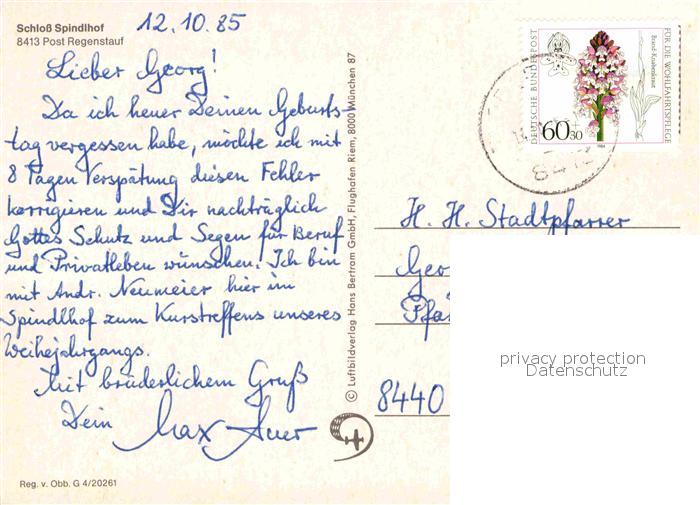 Schloß Spindlhof
8413 Post Regenstauf
12.10.85
Lieber Georg!
Da ich heuer Deinen Geburts-
tag vergessen habe, möchte ich mit
8 Tagen Verspätung diesen Fehler
korrigieren und Dir nachträglich
Gottes Schutz und Segen für Beruf
und Privatleben wünschen. Ich bin
mit Andr. Neumeier hier im
Spindlhof zum Kurstreffens unseres
Weihejahrgangs.
Mit brüderlichem Gruß
Dein Max Auer
Reg. v. Obb. G 4/20261
© Luftbildverlag Hans Bertram GmbH, Flughafen Riem, 8000 München 87
DEUTSCHE BUNDESPOST
60+30
Brand-Knabenkraut
FÜR DIE WOHLFAHRTSPFLEGE
1984
H. H. Stadtpfarrer
Geo
Pfa
8440
privacy protection
Datenschutz